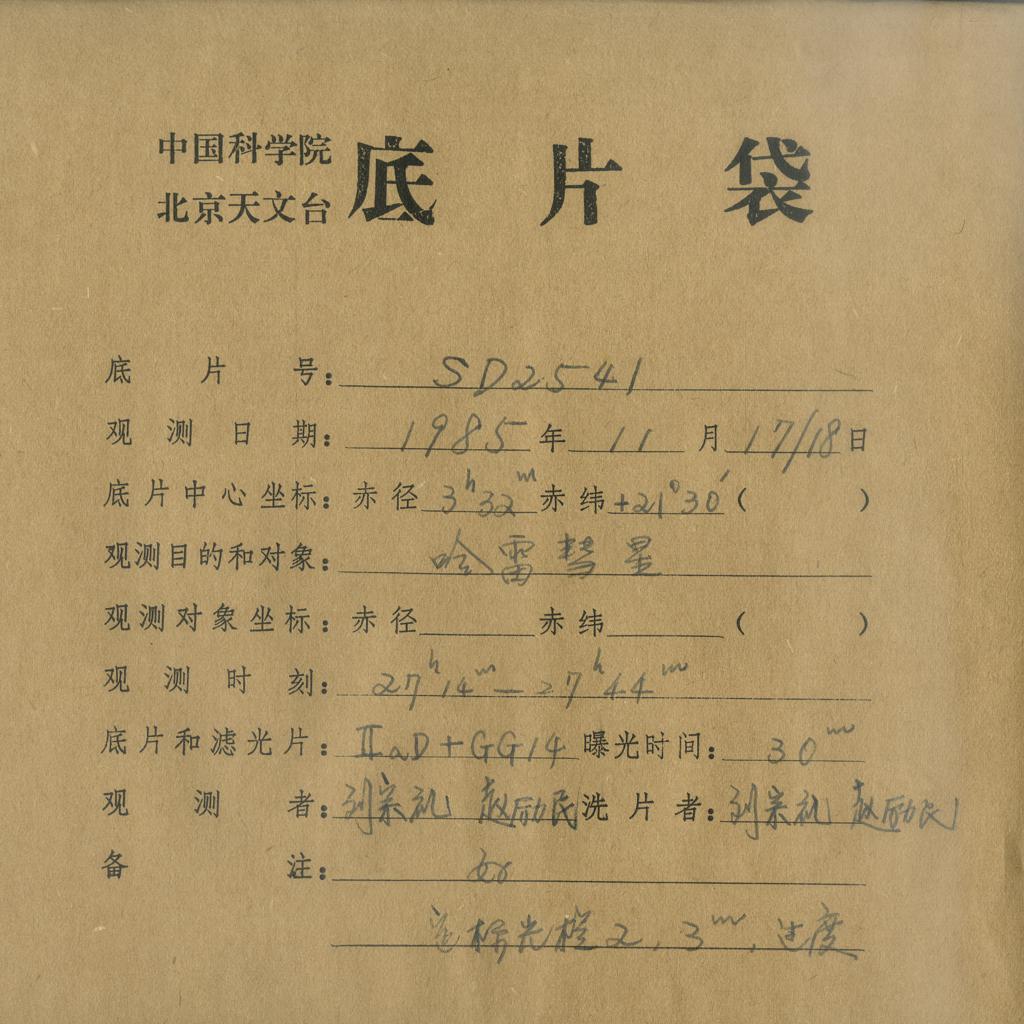 中国科学院
北京天文台
底片袋
底片号：SD2541
观测日期：1985年11月17/18日
底片中心坐标：赤径3ʰ32ᵐ赤纬+21°30′（ ）
观测目的和对象：哈雷彗星
观测对象坐标：赤径 赤纬 （ ）
观测时刻：27ʰ14ᵐ—27ʰ44ᵐ
底片和滤光片：ⅡaD+GG14 曝光时间：30ᵐ
观测者：刘宗礼 赵励民 洗片者：刘宗礼 赵励民
备注：好
标光楔2，3ᵐ，过度